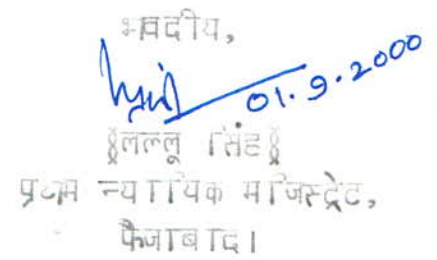 भवदीय,
01.9.2000
§लल्लू सिंह§
प्रथम न्यायिक मजिस्ट्रेट,
फैजाबाद।